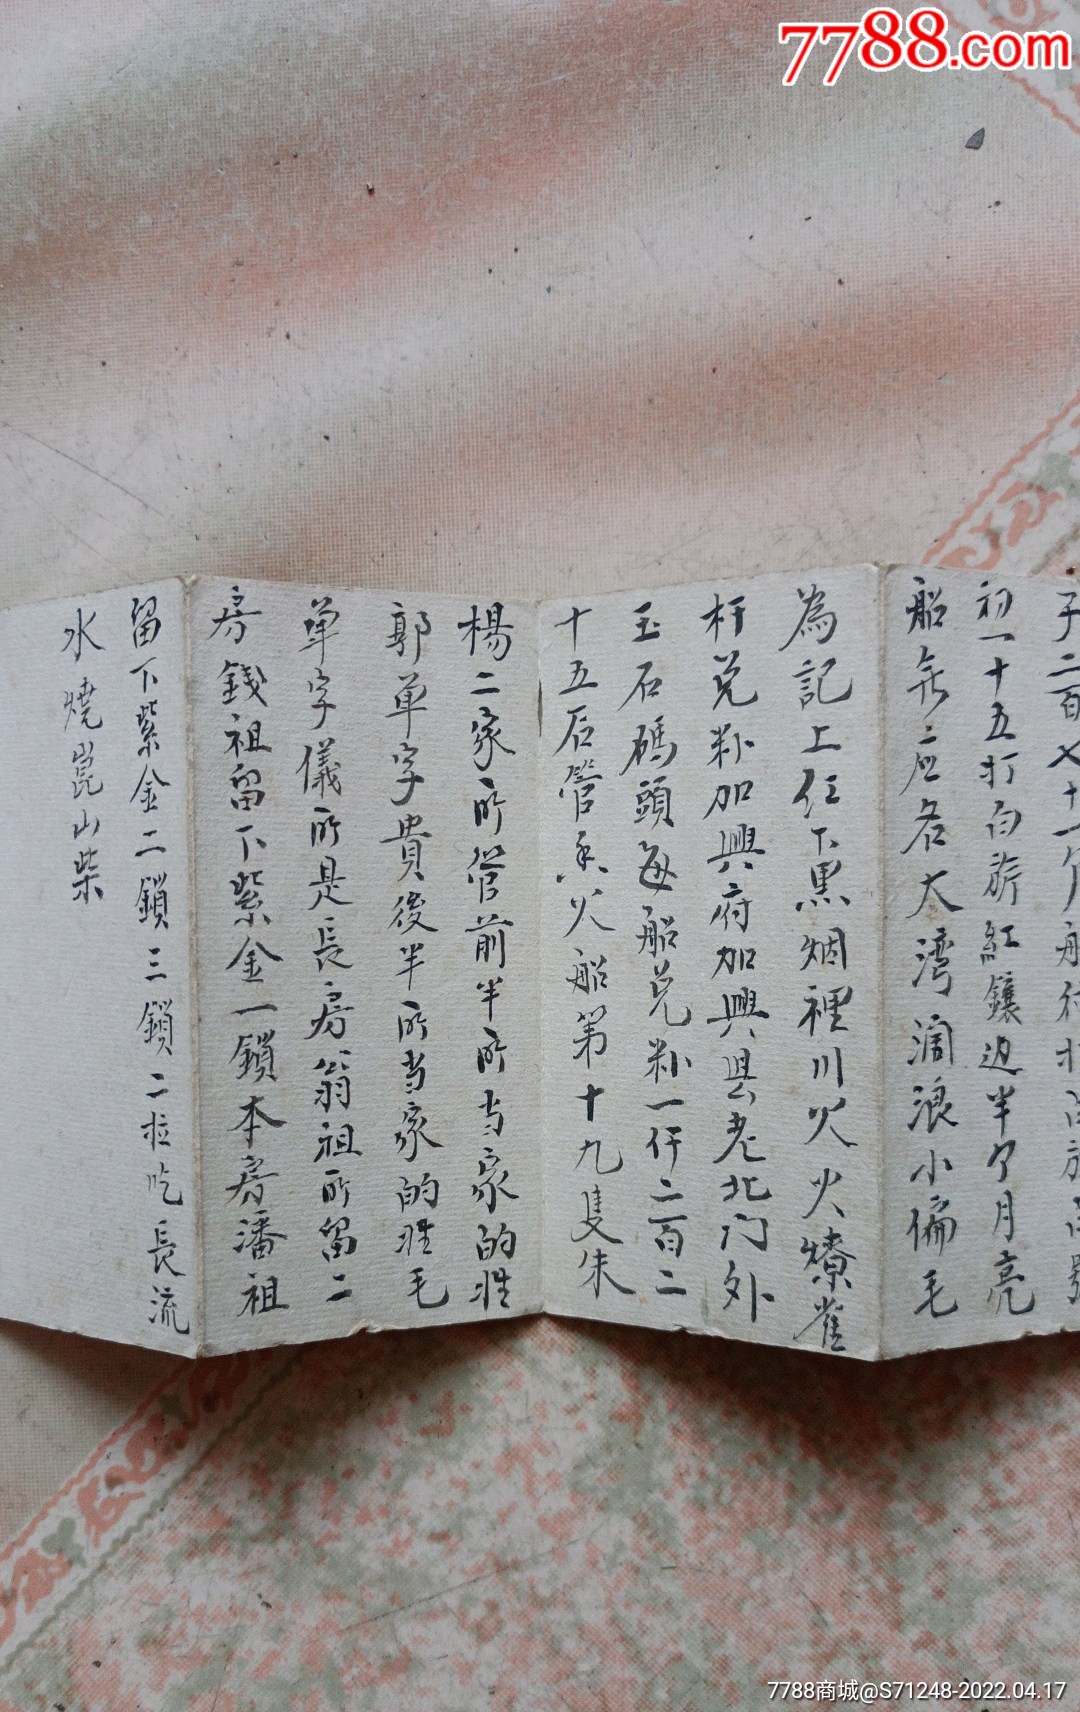 7788.com
子二百七十一
初一十五打白旂紅鑲边半个月亮
船無應名大湾濶浪小偏毛
為記上任下黑烟裡川火火燎雀
杆兑粆加興府加興县老北门外
玉石碼頭每船兑粆一仟二百二
十五石管香火船第十九隻朱
楊二家所管前半所当家的姓
郭单字貴後半所当家的姓毛
单字儀所是長房翁祖所留二
房錢祖留下紫金一鎖本房潘祖
留下紫金二鎖三鎖二粒吃長流
水燒崑山柴
7788商城@S71248-2022.04.17